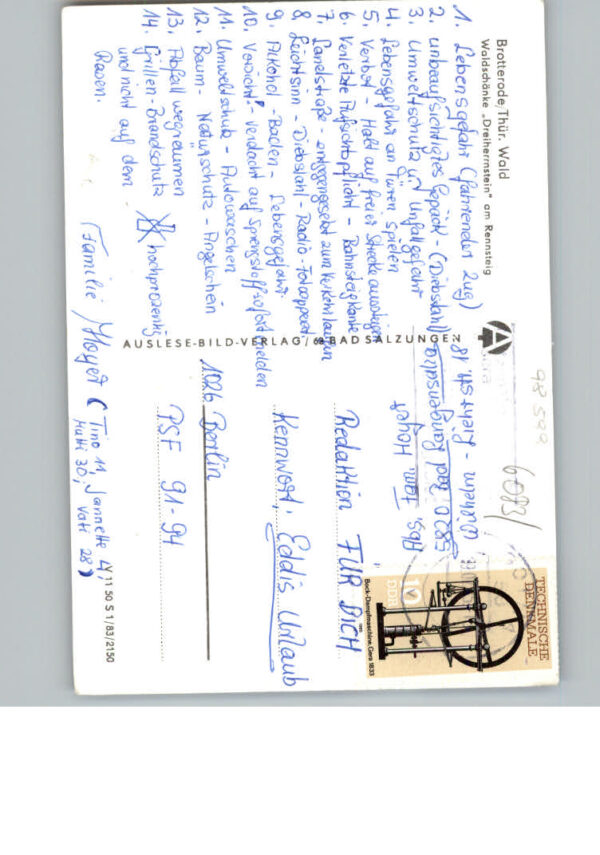 Brotterode, Thür. Wald
Waldschänke „Dreiherrnstein" am Rennsteig
1. Lebensgefahr (fahrender Zug)
2. unbeaufsichtigtes Gepäck - (Diebstahl)
3. Umweltschutz u. Unfallgefahr
4. Lebensgefahr an Türen spielen
5. Verbot - Halt auf freier Strecke aussteigen
6. Verletzte Aufsichtspflicht - Bahnsteigkante
7. Landstraße - entgegengesetzt zum Verkehr laufen
8. Leichtsinn - Diebstahl - Radio - Fotoapparat
9. Alkohol - Baden - Lebensgefahr
10. Vorsicht! - Verdacht auf Sprengstoff sofort melden
11. Umweltschutz - Autowaschen
12. Baum - Naturschutz - Angelschein
13. Abfall wegräumen
14. Grillen - Brandschutz hochprozentig
und nicht auf dem
Rasen.
(Familie Hoyer (Tino 11, Jannette 4,
Mutti 30, Vati 28)
AUSLESE-BILD-VERLAG / 68 BAD SALZUNGEN
V 11 50 S 1/83/2150
98 599
6083/
Abs. Fam. Hoyer
5820 Bad Langensalza
18
Redaktion FÜR DICH
Kennwort: Eddis Urlaub
1026 Berlin
PSF 91-94
TECHNISCHE
DENKMALE
10
DDR
Bock-Dampfmaschine, Gera 1833